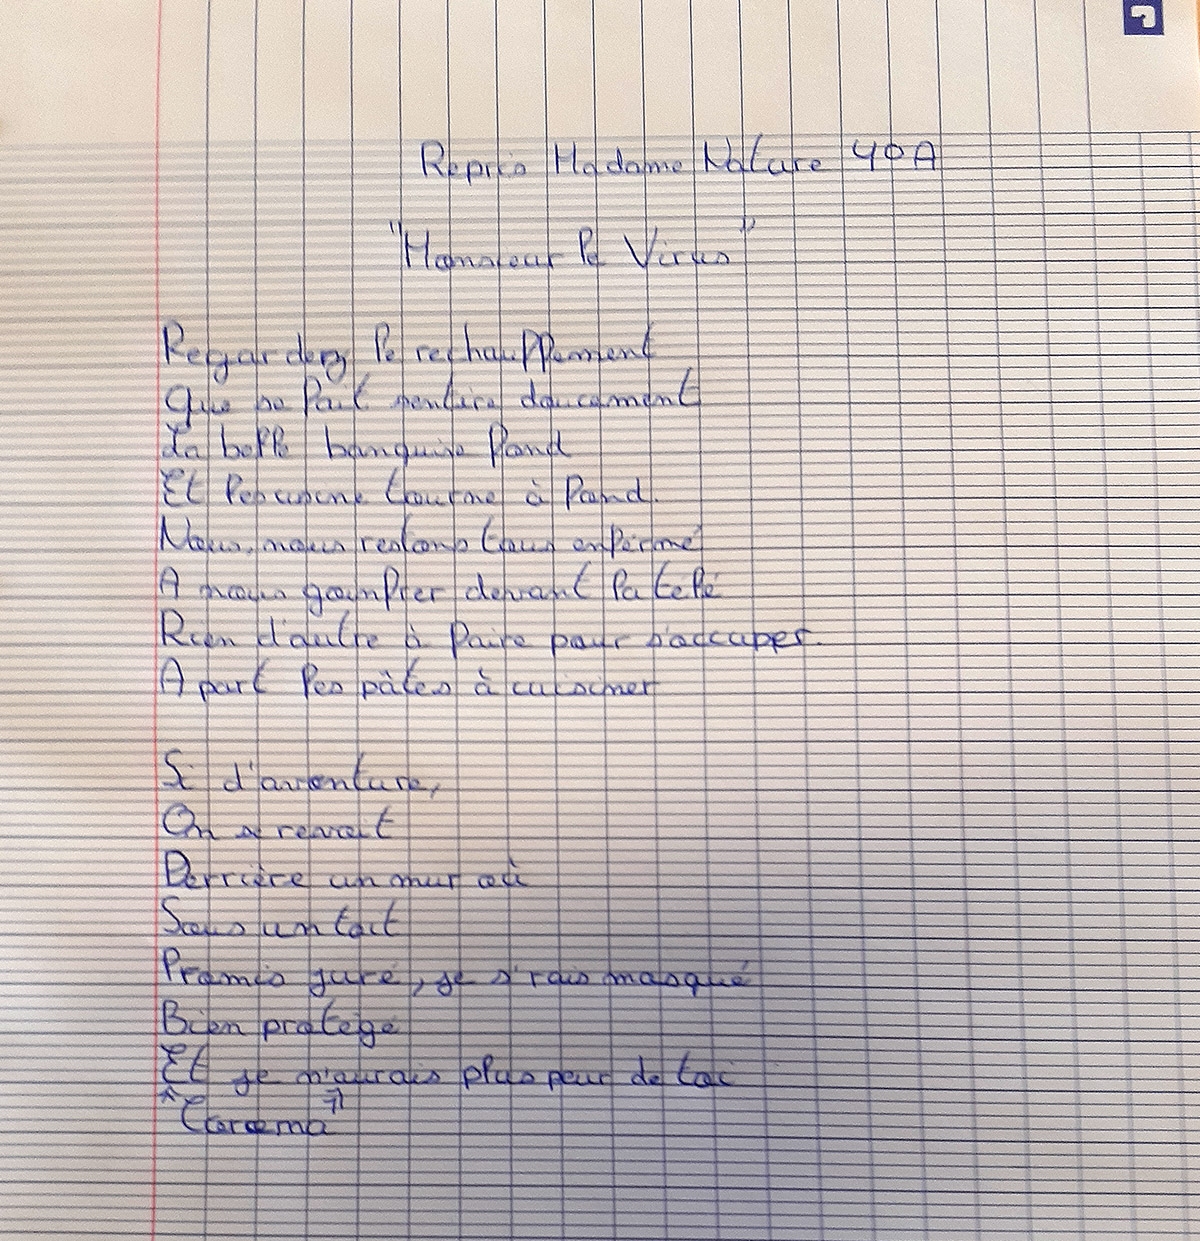 Repris Madame Nature 4PA
"Monsieur le Virus"
Regardez le rechauffement
Que se fait sentire doucement
La belle banquise fond
Et l'epusine tourne à fond.
Nous, nous restons tous enfermé
A nous gonfler devant la télé
Rien d'autre à faire pour s'occuper.
A part les pâtes à cuisiner
Si d'aventure,
On se revoit
Derrière un mur où
Sous un toit
Promis juré, je s'rais masqué
Bien protégé
Et je n'aurais plus peur de toi
"Corona"